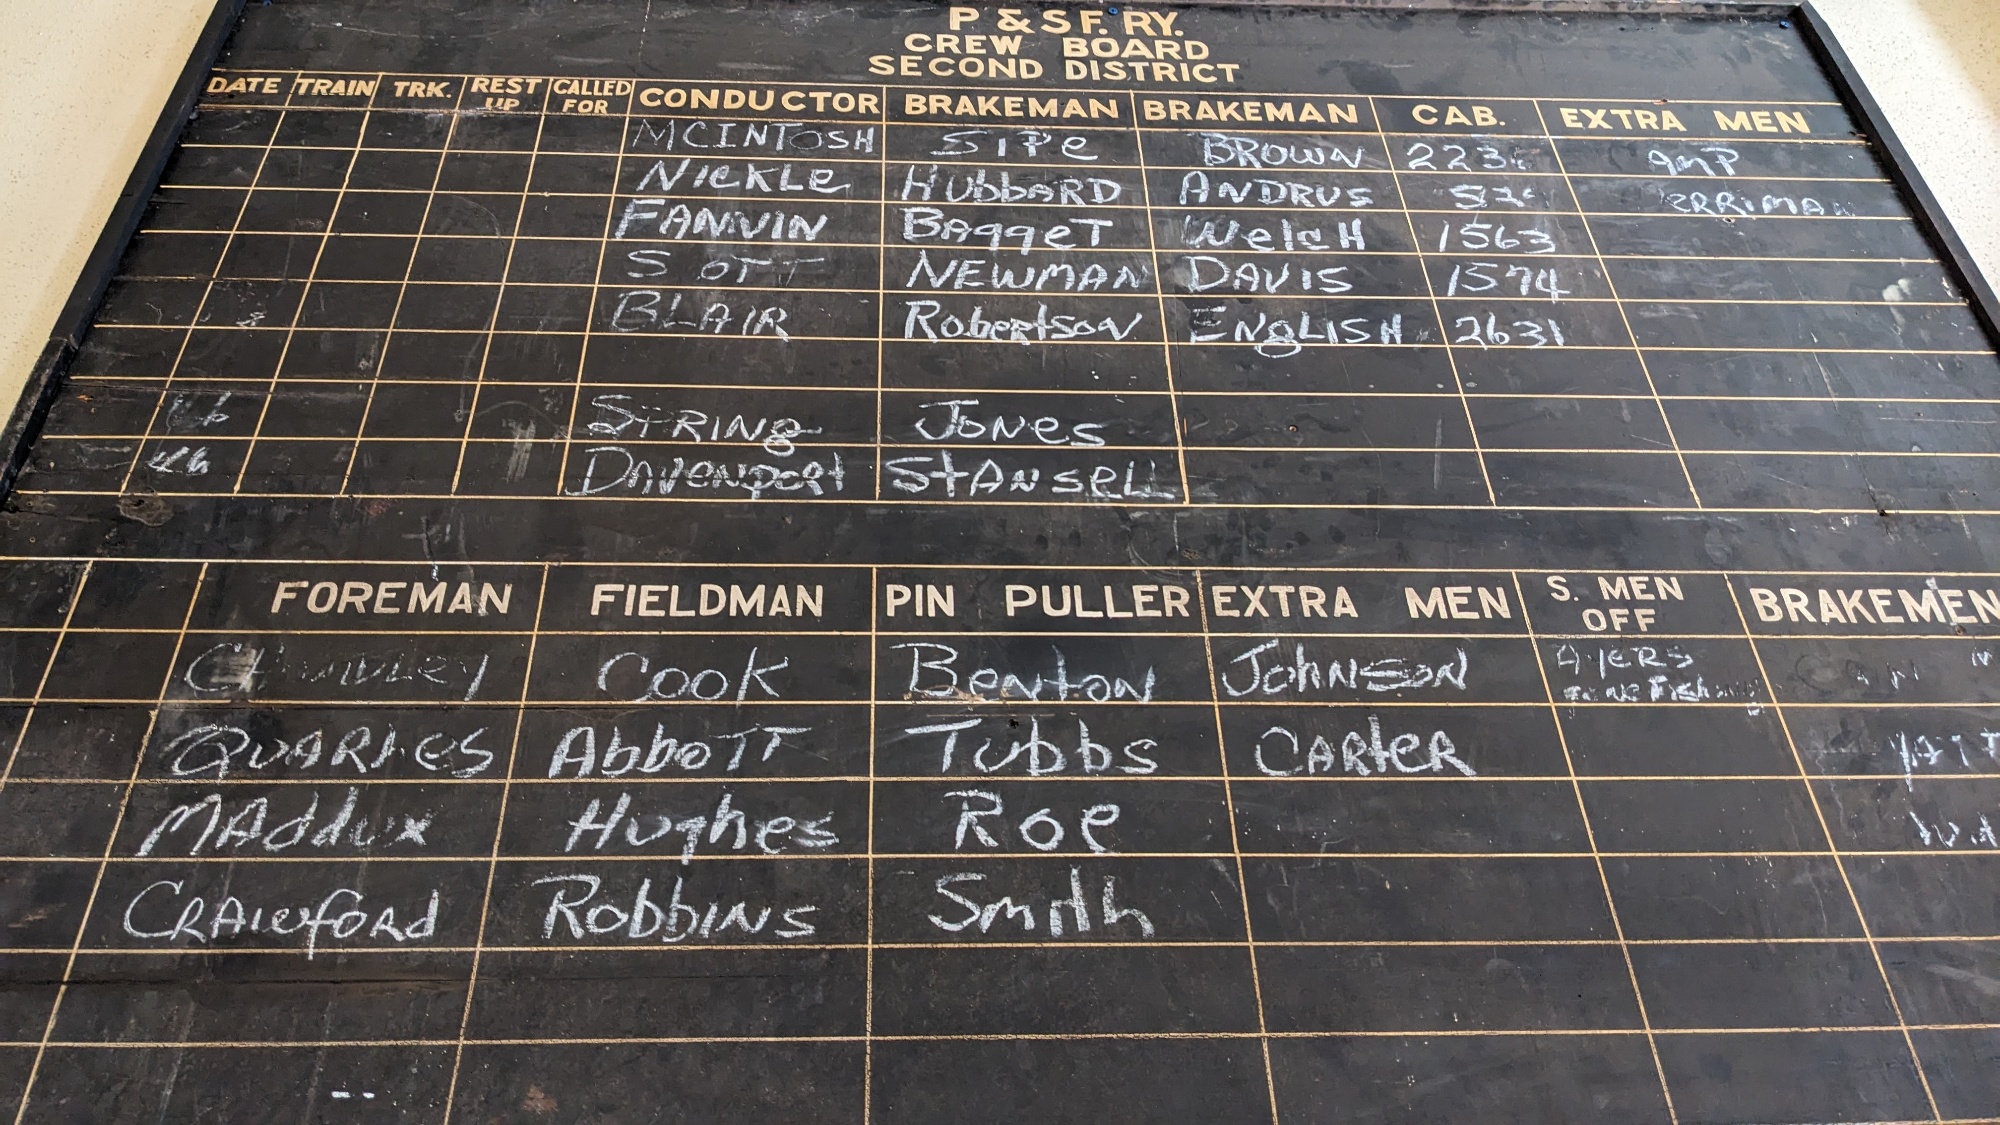 P & S F. RY.
CREW BOARD
SECOND DISTRICT
DATE TRAIN TRK. REST UP CALLED FOR CONDUCTOR BRAKEMAN BRAKEMAN CAB. EXTRA MEN
MCINTOSH SIPe BROWN
NICKLe HUbbARD ANDRUS
FANVIN BAggeT WelcH 1563
S OTT NEWMAN DAVIS 1574
BLAIR RobeRtsoN ENgLISH 2631
STRINg JoNes
DAVeNpoRt StANseLL
FOREMAN FIELDMAN PIN PULLER EXTRA MEN S. MEN OFF BRAKEMEN
Cook BeNtoN JohNsoN AyeRs
QUARLES AbboTT Tubbs CARteR
MADdux Hughes Roe
CRAwfoRd RobbINs Smith